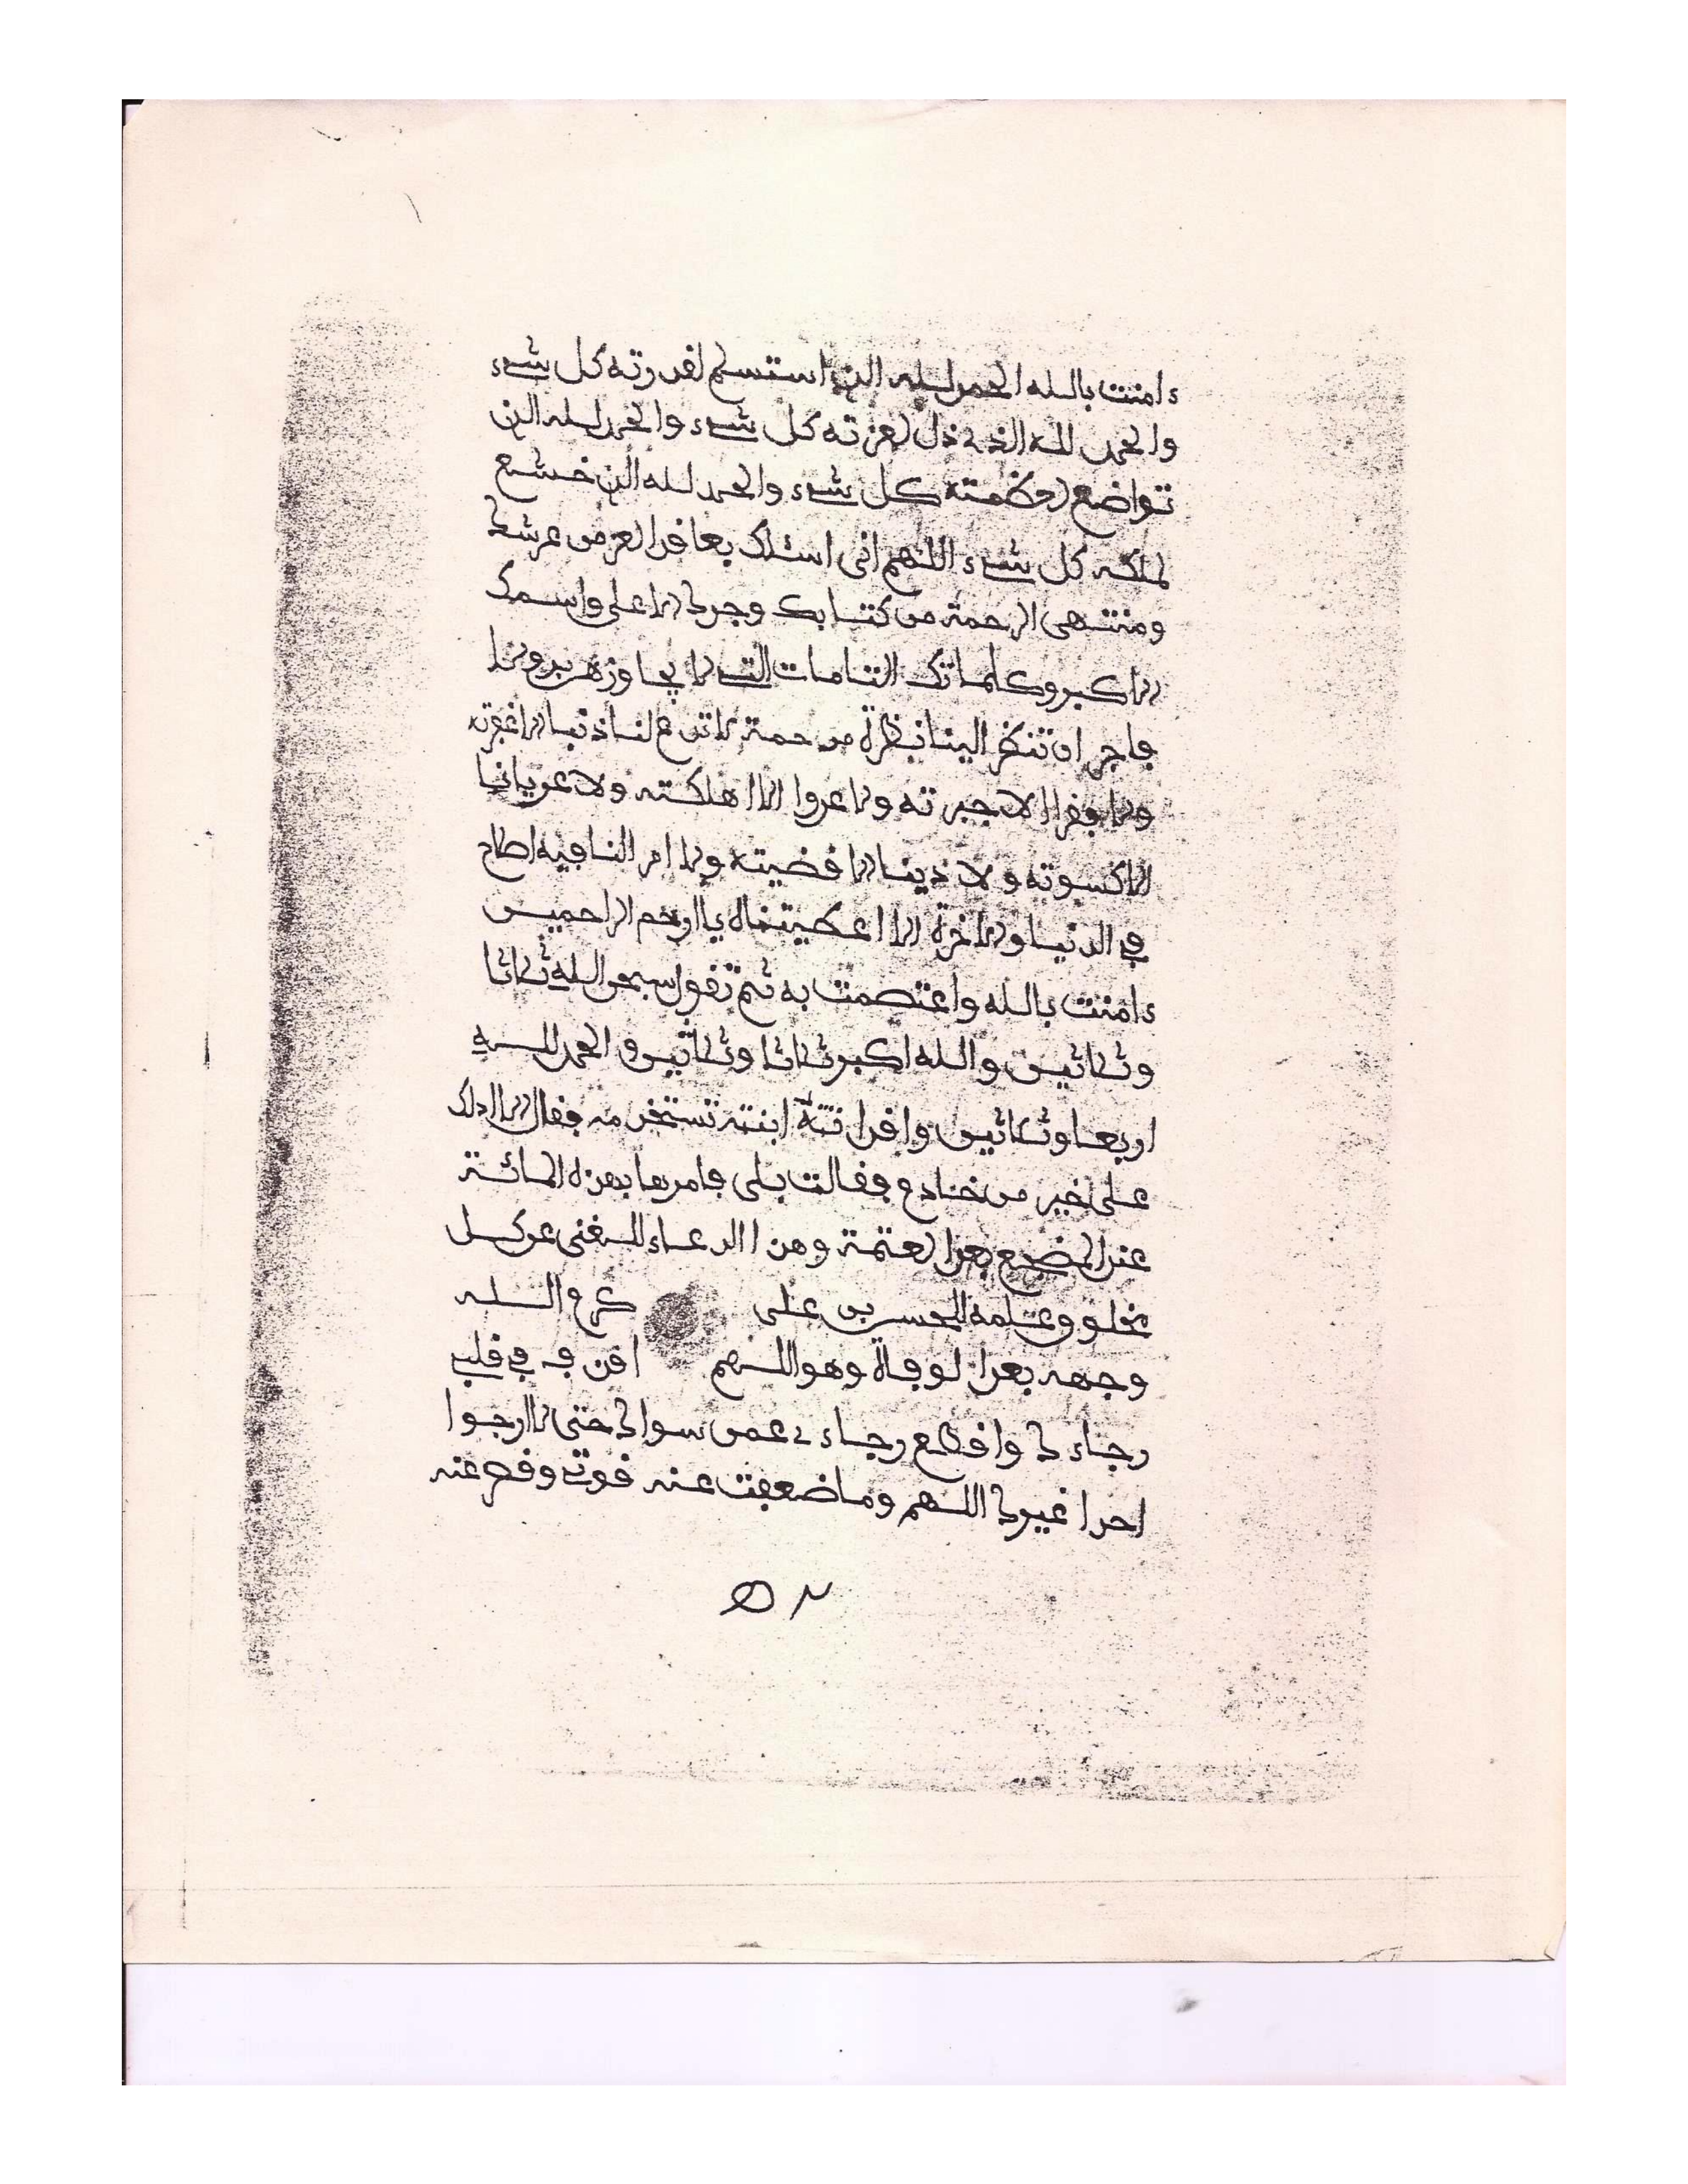 ءامنت بالله الحمد لله الذي استسلم لقدرته كل شيء
والحمد لله الذي ذل لعزته كل شيء والحمد لله الذي
تواضع لعظمته كل شيء والحمد لله الذي خشع
لملكه كل شيء اللهم اني اسئلك بمعاقد العز من عرشك
ومنتهى الرحمة من كتابك وجدك الاعلى واسمك
الاكبر وكلماتك التامات التي لا يجاوزهن بر ولا
فاجر ان تنظر الينا نظرة مرحمة لا تدع لنا ذنبا الا غفرته
ولا فقرا الا جبرته ولا عدوا الا اهلكته ولا عريانا
الا كسوته ولا دينا الا قضيته ولا امر لنا فيه اصلاح
في الدنيا والاخرة الا اعطيتناه يا ارحم الراحمين
ءامنت بالله واعتصمت به ثم تقول سبحن الله ثلاثا
وثلاثين والله اكبر ثلاثا وثلاثين والحمد لله
اربعا وثلاثين ابنته تستخدمه فقال الا ادلك
على خير من خادم فقالت بلى فامرها بهذه المائة
عند المضجع بعد العتمة وهذا الدعاء للغنى عن كل
مخلوق وعلمه للحسن بن علي كرم الله
وجهه بعد الوفاة وهو اللهم اقذف في قلبي
رجاءك واقطع رجاءي عمن سواك حتى لا ارجوا
احدا غيرك اللهم وما ضعفت عنه قوتي وقصر عنه